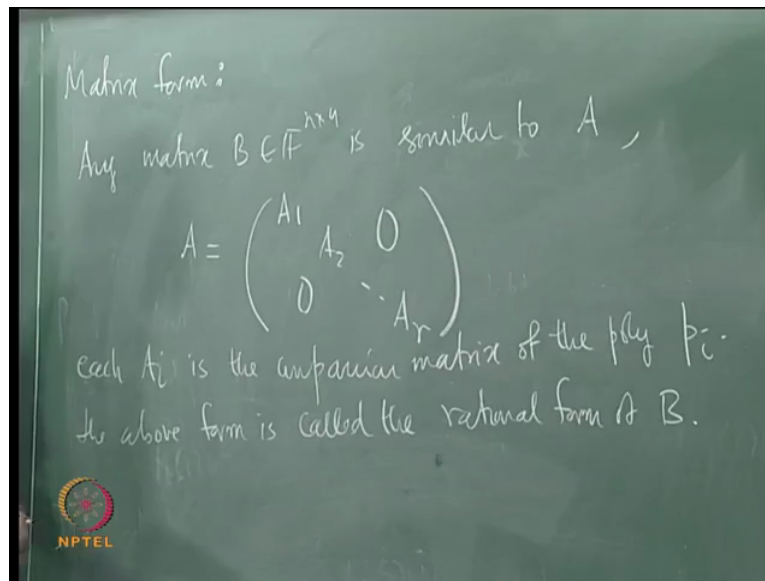 Matrix form:
Any matrix B ∈ F^{n×n} is similar to A,
A = ( A1 A2 0 0 ⋱ Ar )
each Ai is the companion matrix of the poly pi.
the above form is called the rational form of B.
NPTEL